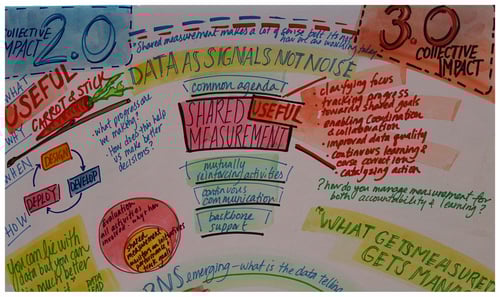 COLLECTIVE
IMPACT
2.0
Shared measurement makes a lot of sense but it's not
how we are working today
3.0
COLLECTIVE
IMPACT
DATA AS SIGNALS NOT NOISE
WHAT
USEFUL
CARROT & STICK
WHY
WHEN
HOW
DESIGN
DEVELOP
DEPLOY
- what progress are
we making?
- How does this help
us make better
decisions?
common agenda
SHARED
MEASUREMENT
USEFUL
mutually
reinforcing activities
continuous
communication
backbone
support
- clarifying focus
- tracking progress
towards shared goals
- enabling coordination
& collaboration
- improved data quality
- continuous learning &
course corrections
- catalyzing action
? how do you manage measurement for
both accountability & learning?
Evaluation
all activities
involved
Shared
measurement
You can lie with
data but you can
much better
"WHAT GETS MEASURE
GETS MANA
RNS emerging - what is the data telling